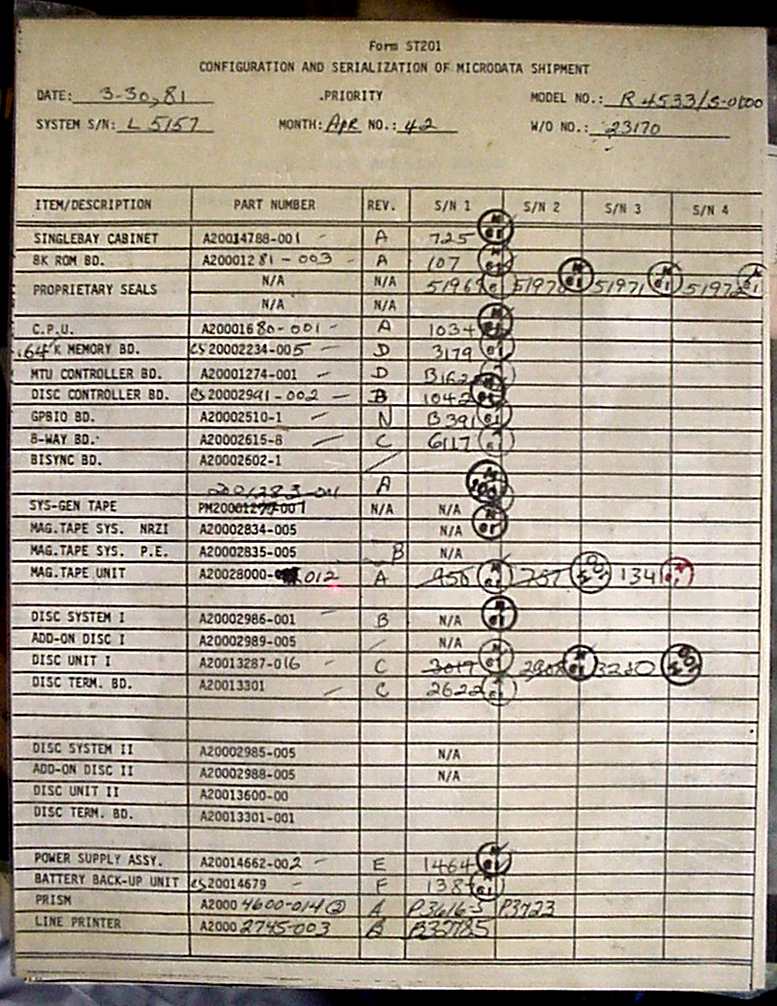 Form ST201
CONFIGURATION AND SERIALIZATION OF MICRODATA SHIPMENT
DATE: 3-30-81 .PRIORITY MODEL NO.: R 4533/S-0000
SYSTEM S/N: L 5157 MONTH: Apr NO.: 42 W/O NO.: 23170
ITEM/DESCRIPTION PART NUMBER REV. S/N 1 S/N 2 S/N 3 S/N 4
SINGLEBAY CABINET A20014788-001 - A 725
8K ROM BD. A20001281-003 - A 107
N/A N/A
PROPRIETARY SEALS 51969 51970 51971 51972
N/A N/A
C.P.U. A20001680-001 - A 1034
64K MEMORY BD. CS 20002234-005 - D 3179
MTU CONTROLLER BD. A20001274-001 - D B162
DISC CONTROLLER BD. CS 20002991-002 - B 1042
GPBIO BD. A20002510-1 - N B391
8-WAY BD. A20002615-8 - C 6117
BISYNC BD. A20002602-1 /
A
SYS-GEN TAPE N/A N/A
MAG.TAPE SYS. NRZI A20002834-005 N/A
MAG.TAPE SYS. P.E. A20002835-005 B N/A
MAG.TAPE UNIT A20028000-012 A 134
DISC SYSTEM I A20002986-001 - B N/A
ADD-ON DISC I A20002989-005 / N/A
DISC UNIT I A20013287-016 - C 3019 3230
DISC TERM. BD. A20013301 - C 2622
DISC SYSTEM II A20002985-005 N/A
ADD-ON DISC II A20002988-005 N/A
DISC UNIT II A20013600-00
DISC TERM. BD. A20013301-001
POWER SUPPLY ASSY. A20014662-002 - E 1464
BATTERY BACK-UP UNIT CS 20014679 - F 138
PRISM A2000 4600-014 (2) A P3616-5 P3723
LINE PRINTER A2000 2745-003 B B32785